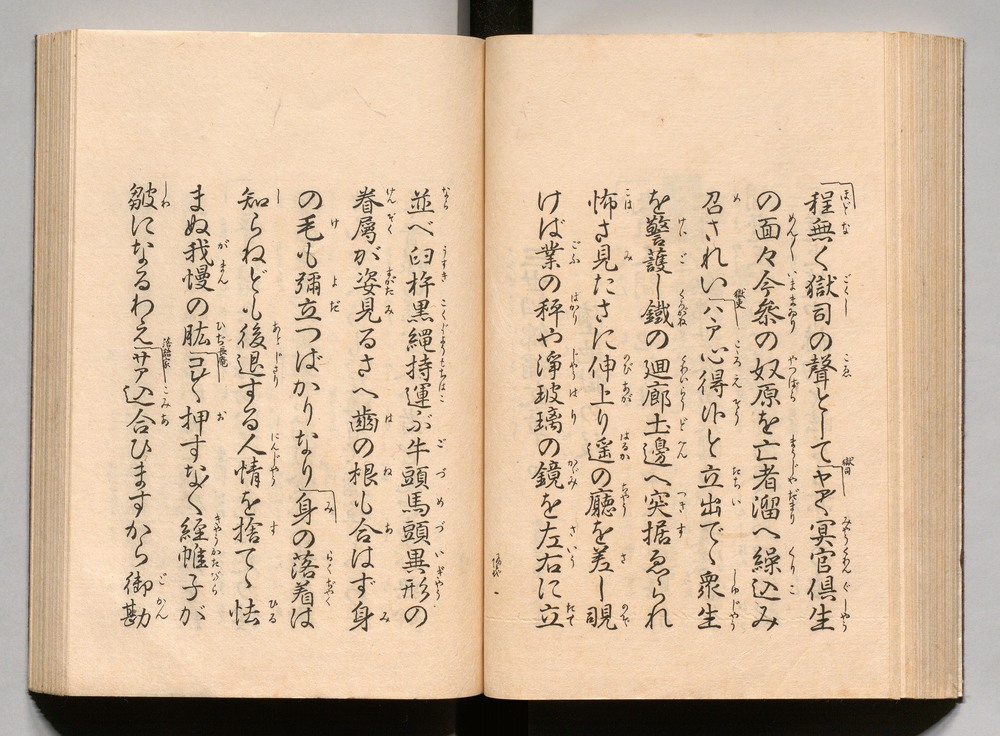 程無く獄司の聲としてヤアく冥官倶生
の面々今叅の奴原を亡者溜へ繰込み
召されいハア心得升と立出でゝ衆生
を警護し鐵の廻廊土邊へ突据ゑられ
怖さ見たさに伸上り遥の廳を差し覗
けば業の秤や淨玻璃の鏡を左右に立
並べ臼杵黒縄持運ぶ牛頭馬頭異形の
眷属が姿見るさへ齒の根も合はず身
の毛も彌立つばかりなり身の落着は
知らねども後退する人情を捨てゝ怯
まぬ我慢の肱コレく押すなく経帷子が
皺になるわえサア込合ひますから御勘